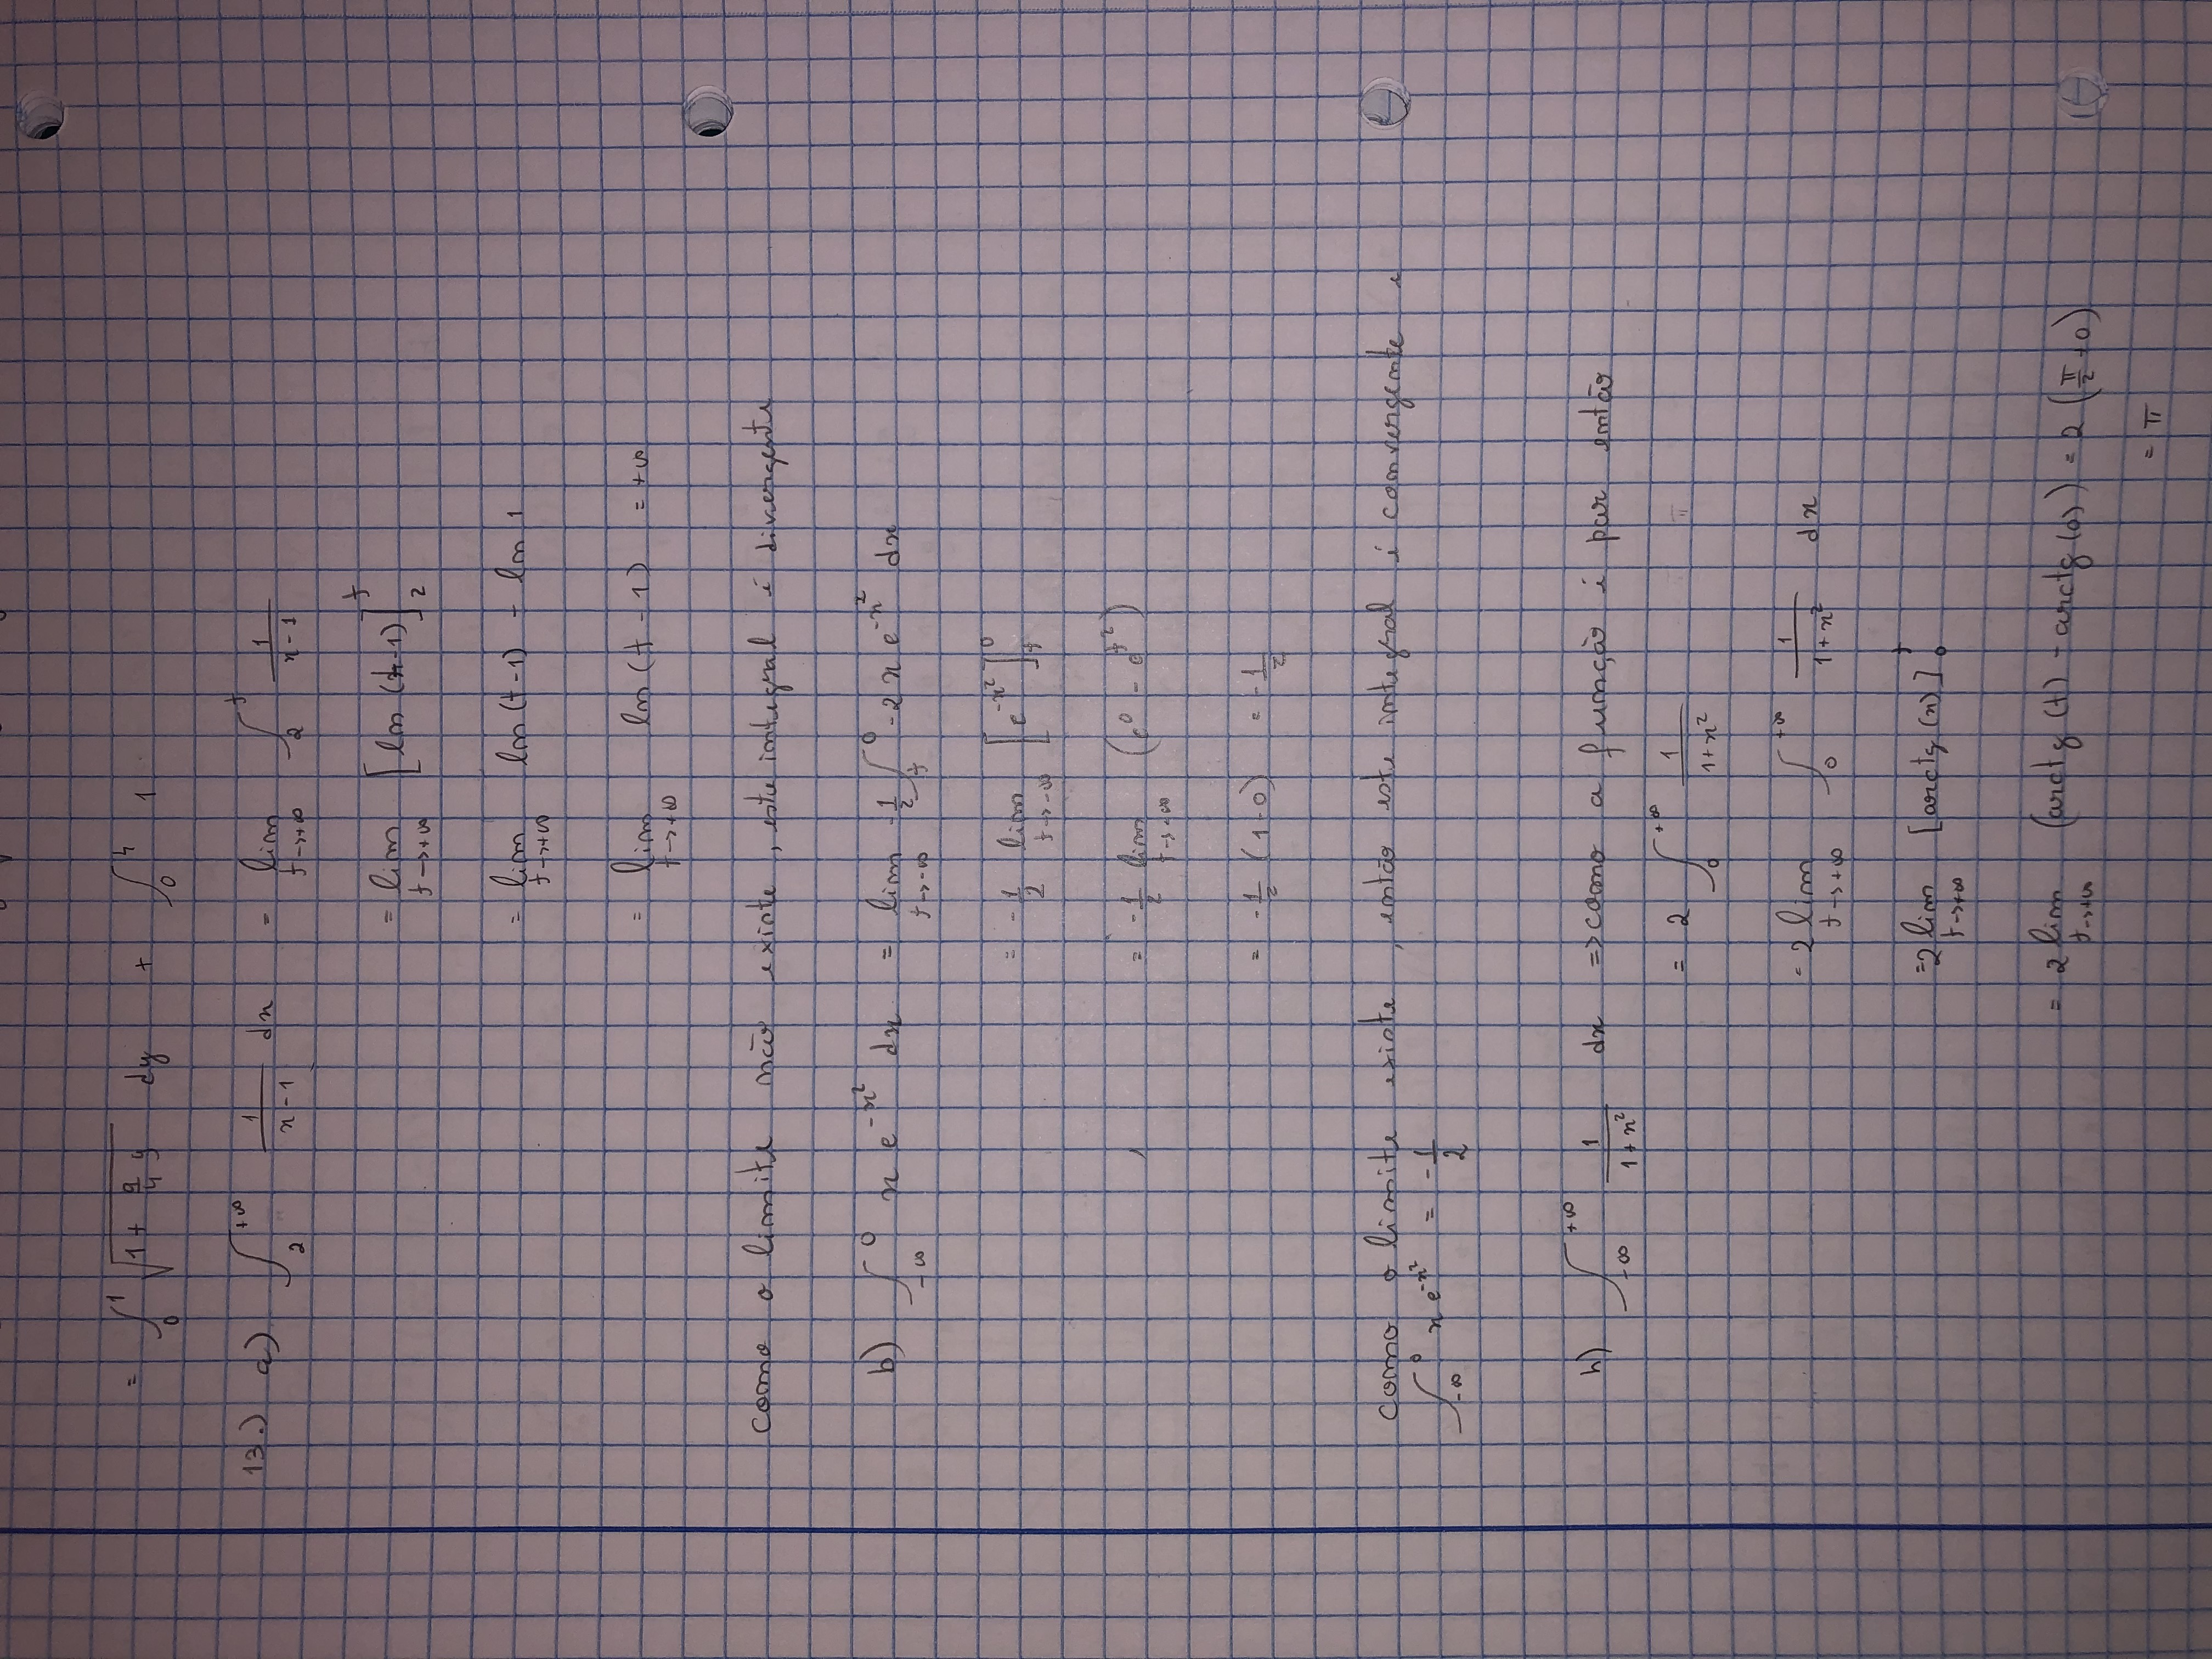 = ∫₀¹ √(1 + 9/4 y) dy + ∫₀⁴ 1
13.) a) ∫₂^{+∞} 1/(x-1) dx = lim_{t→+∞} ∫₂^t 1/(x-1)
= lim_{t→+∞} [ln (x-1)]₂^t
= lim_{t→+∞} ln (t-1) - ln 1
= lim_{t→+∞} ln (t-1) = +∞
como o limite não existe, este integral é divergente
b) ∫_{-∞}^0 x e^{-x²} dx = lim_{t→-∞} -1/2 ∫_t^0 -2x e^{-x²} dx
= -1/2 lim_{t→-∞} [e^{-x²}]_t^0
= -1/2 lim_{t→-∞} (e^0 - e^{t²})
= -1/2 (1-0) = -1/2
como o limite existe, então este integral é convergente e
∫_{-∞}^0 x e^{-x²} = -1/2
h) ∫_{-∞}^{+∞} 1/(1+x²) dx => como a função é par então
= 2 ∫₀^{+∞} 1/(1+x²)
= 2 lim_{t→+∞} ∫₀^{+∞} 1/(1+x²) dx
= 2 lim_{t→+∞} [arctg (x)]₀^t
= 2 lim_{t→+∞} (arctg (t) - arctg (0)) = 2 (π/2 - 0)
= π